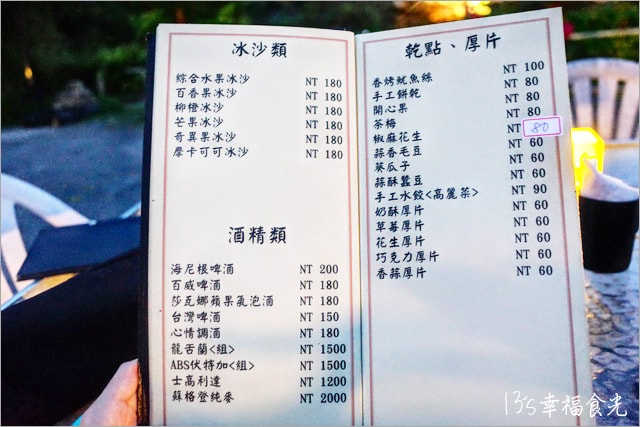 冰沙類
綜合水果冰沙 NT 180
百香果冰沙 NT 180
柳橙冰沙 NT 180
芒果冰沙 NT 180
奇異果冰沙 NT 180
摩卡可可冰沙 NT 180
酒精類
海尼根啤酒 NT 200
百威啤酒 NT 180
莎瓦娜蘋果氣泡酒 NT 180
台灣啤酒 NT 150
心情調酒 NT 180
龍舌蘭<組> NT 1500
ABS伏特加<組> NT 1500
士高利達 NT 1200
蘇格登純麥 NT 2000
乾點、厚片
香烤魷魚絲 NT 100
手工餅乾 NT 80
開心果 NT 80
茶梅 NT 80
椒麻花生 NT 80
蒜香毛豆 NT 60
葵瓜子 NT 60
蒜酥蠶豆 NT 60
手工水餃<高麗菜> NT 90
奶酥厚片 NT 60
草莓厚片 NT 60
花生厚片 NT 60
巧克力厚片 NT 60
香蒜厚片 NT 60
13's幸福食光